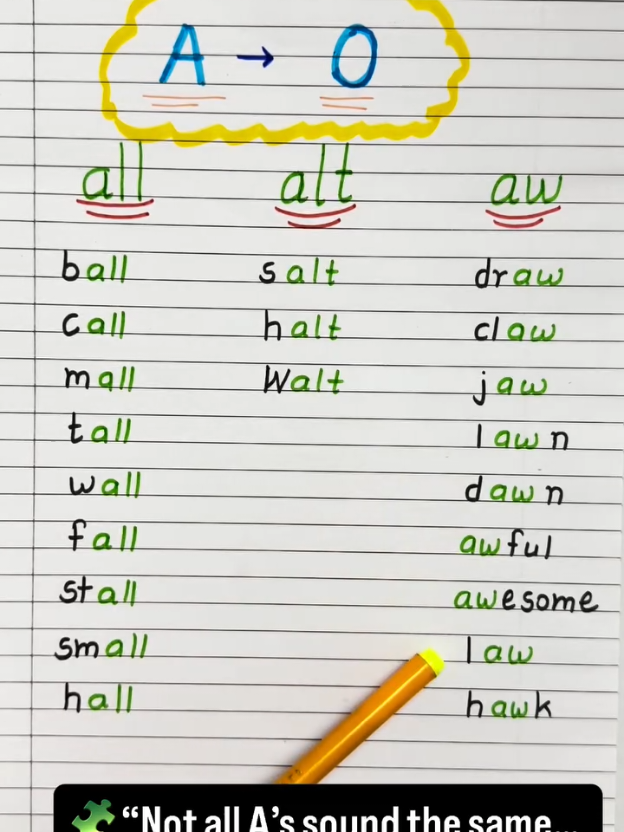 A → O
all alt aw
ball salt draw
call halt claw
mall Walt jaw
tall lawn
wall dawn
fall awful
stall awesome
small law
hall hawk
🧩 “Not all A’s sound the same...